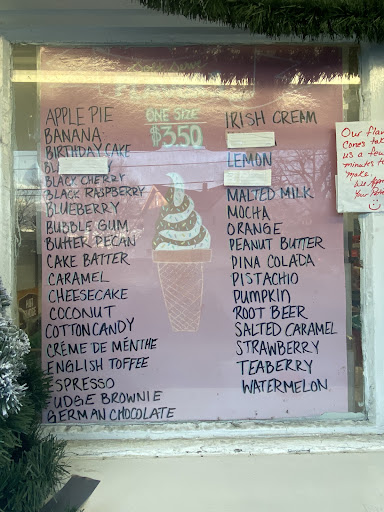 ONE SIZE
$3.50
APPLE PIE
BANANA
BIRTHDAY CAKE
BLACK CHERRY
BLACK RASPBERRY
BLUEBERRY
BUBBLE GUM
BUTTER PECAN
CAKE BATTER
CARAMEL
CHEESECAKE
COCONUT
COTTON CANDY
CRÈME DE MENTHE
ENGLISH TOFFEE
ESPRESSO
FUDGE BROWNIE
GERMAN CHOCOLATE
IRISH CREAM
LEMON
MALTED MILK
MOCHA
ORANGE
PEANUT BUTTER
PINA COLADA
PISTACHIO
PUMPKIN
ROOT BEER
SALTED CARAMEL
STRAWBERRY
TEABERRY
WATERMELON
Our
Cones
us a few
minutes to
make.